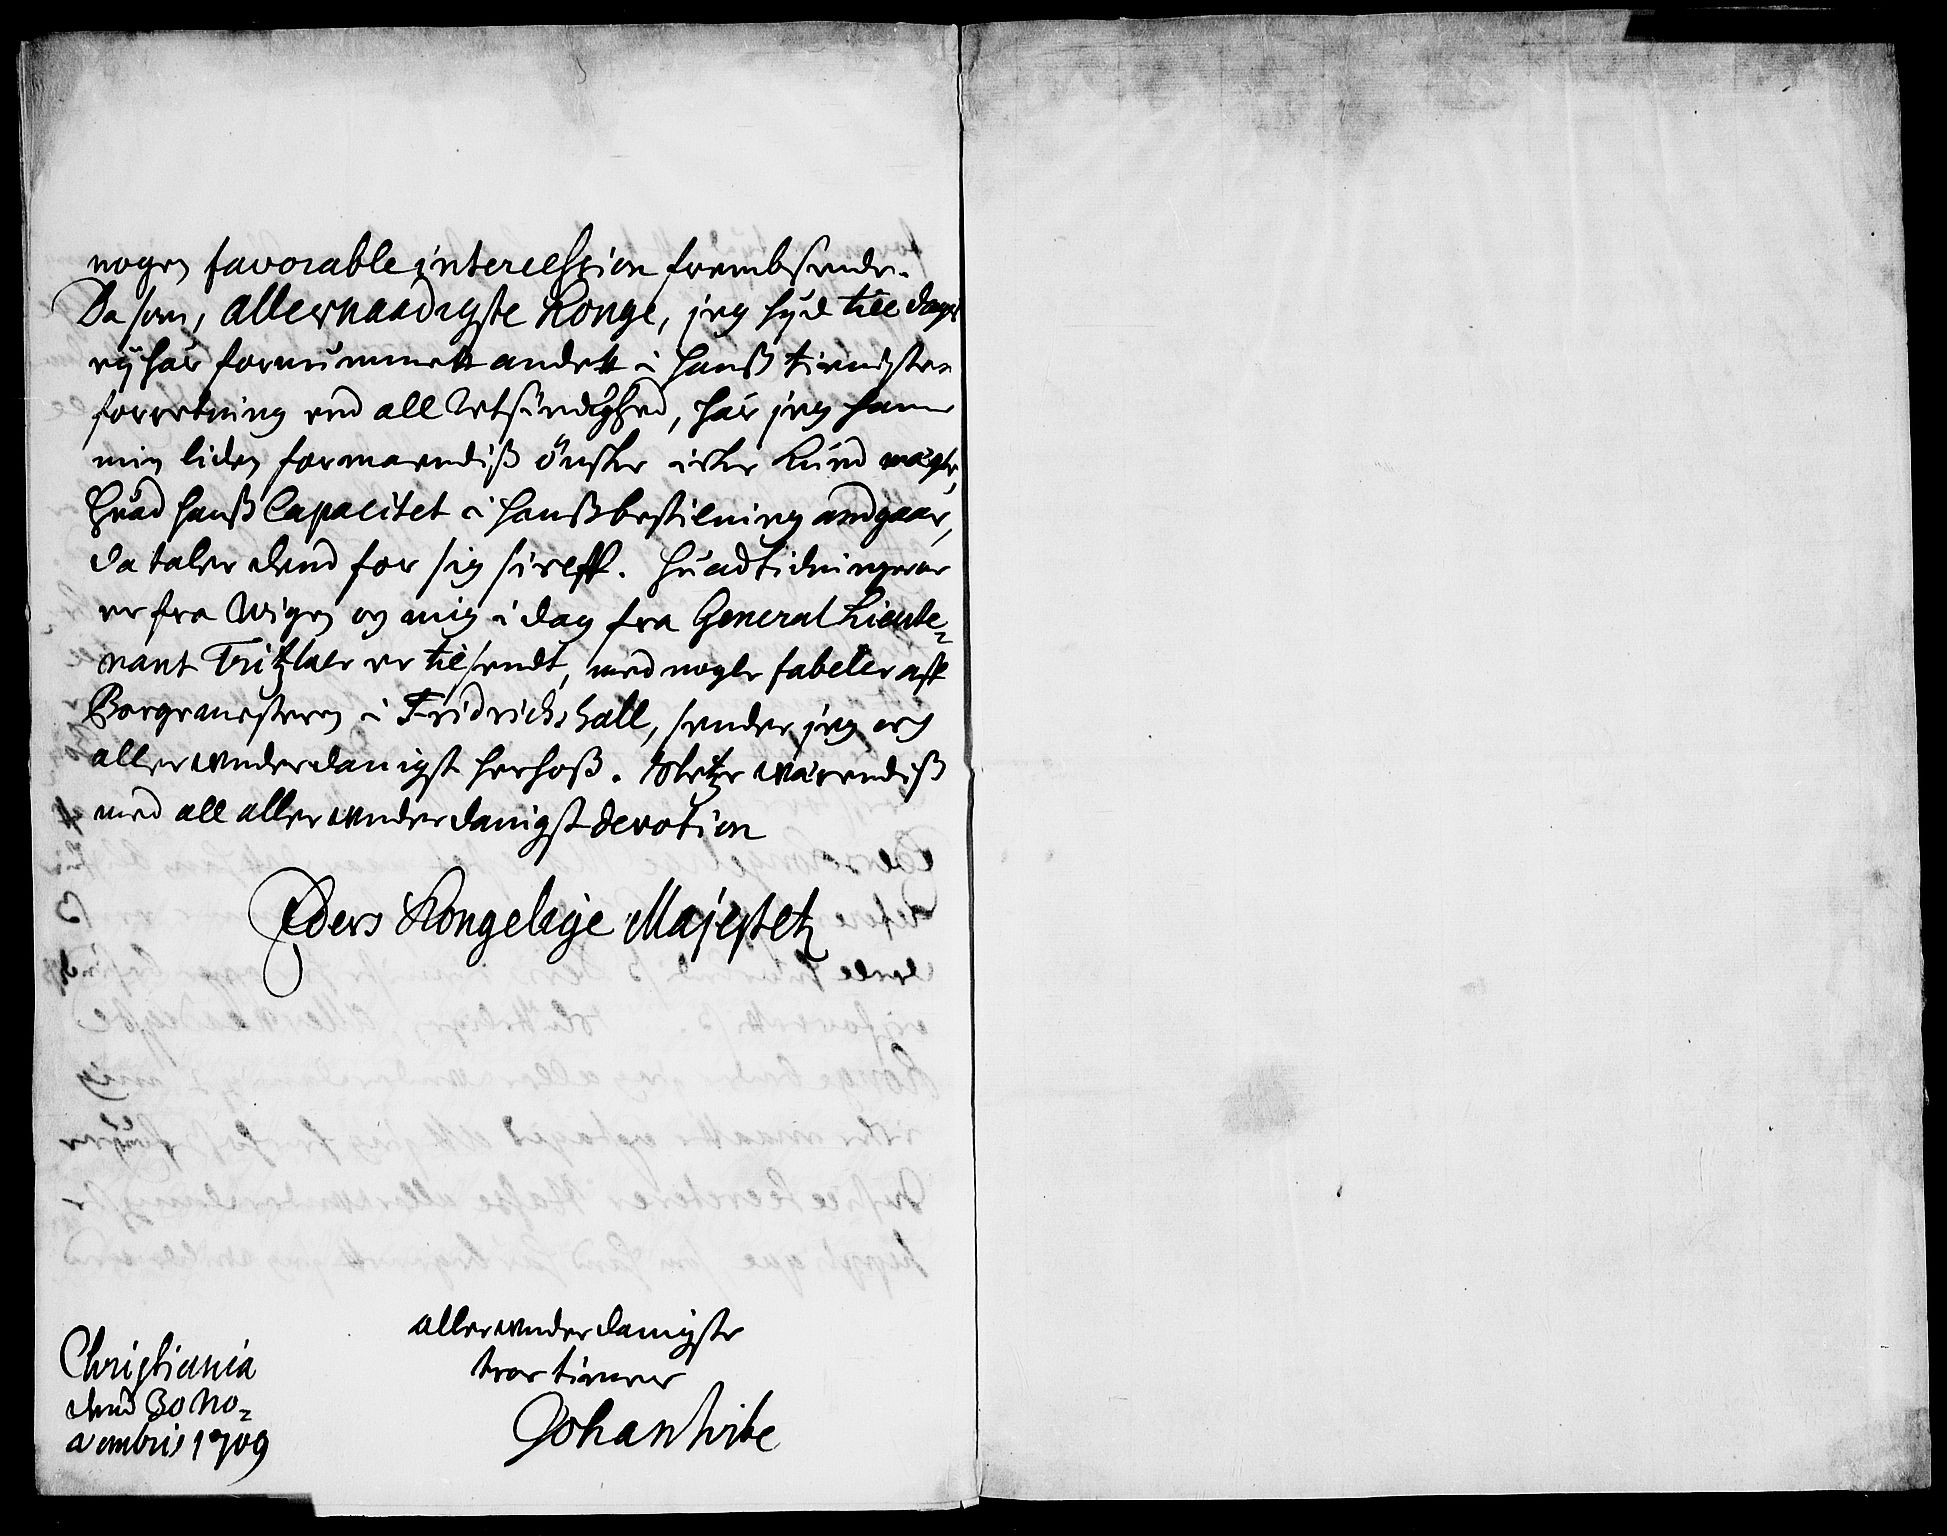 nogen favorable intercession frembsende.
Da som, allernaadigste Konge, jeg hid till dags
ey har fornummett andett i hanß tienistes
forretning end all Retsindighed, har jeg ham
min liden formaendiß ønske icke kund nægte,
Huad hanß Capacitet i hanß bestilning andgaar,
da taler dend for sig sielff. Huad tidningerne
er fra Wigen og mig i dag fra General Lieute-
nant Tritzler er tilsendt, med nogle fabeler aff
Borgemesteren i Fridrichshall, sender jeg og
allerwnderdanigst herhoß. Stetze wærendiß
med all allerwnderdanigst devotion
Eders Kongelige Majestetz
allerwnderdanigste
troe tiener
Johan Wibe
Christiania
dend 30 No-
vembris 1709